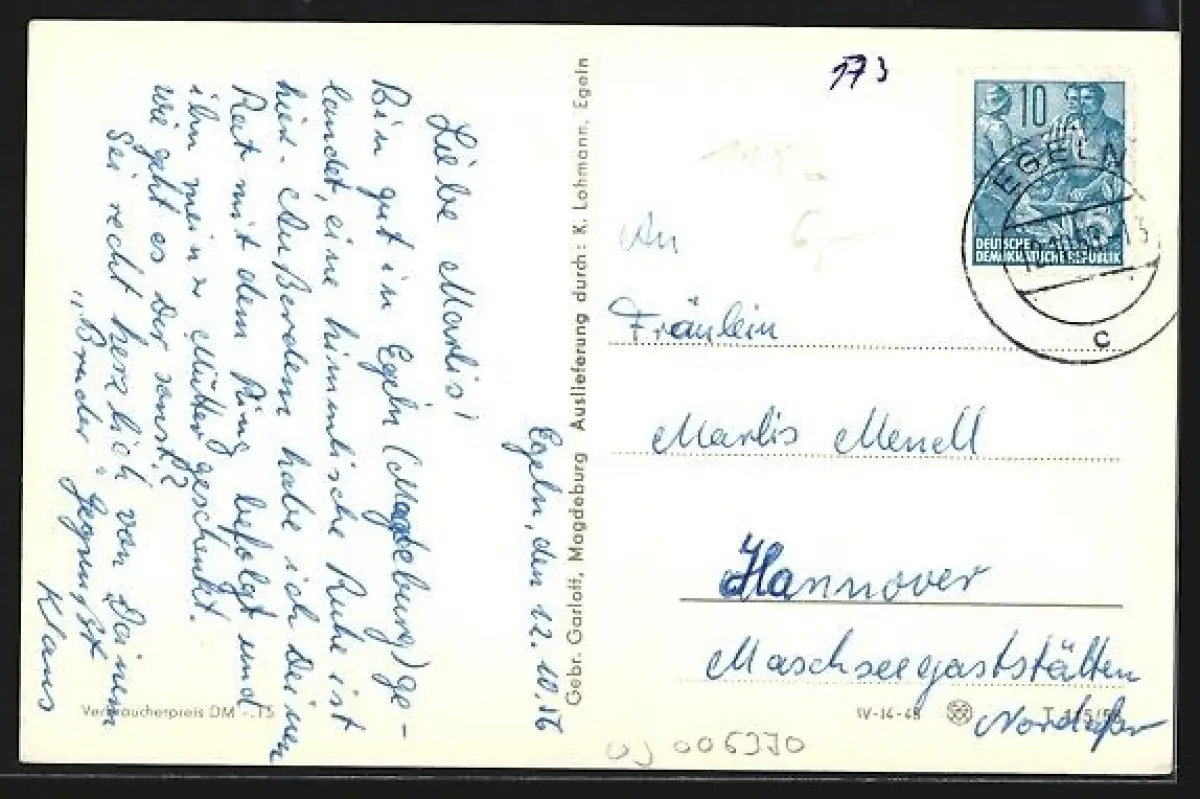 Egeln, den 12. 10. 56
Liebe Marlis!
Bin gut in Egeln (Magdeburg) ge-
landet, eine himmlische Ruhe ist
hier. Außerdem habe ich Deinen
Rat mit dem Ring befolgt und
ihn meiner Mutter geschenkt.
Wie geht es Dir sonst?
Sei recht herzlich von Deinem
„Bruder“ gegrüßt
Klaus
Verbraucherpreis DM -.15
Gebr. Garloff, Magdeburg Auslieferung durch: K. Lohmann, Egeln
173
10
DEUTSCHE
DEMOKRATISCHE REPUBLIK
EGELN
c
An
Fräulein
Marlis Menell
Hannover
Maschseegaststätten
Nordufer
IV-14-48
006370